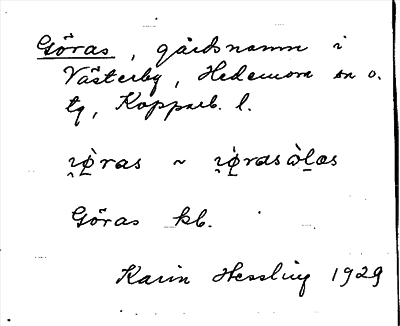 Göras, gårdsnamn i
Västerby, Hedemora sn o.
tg, Kopparb. l.
ras ~
Göras kb.
Karin Hessling 1929